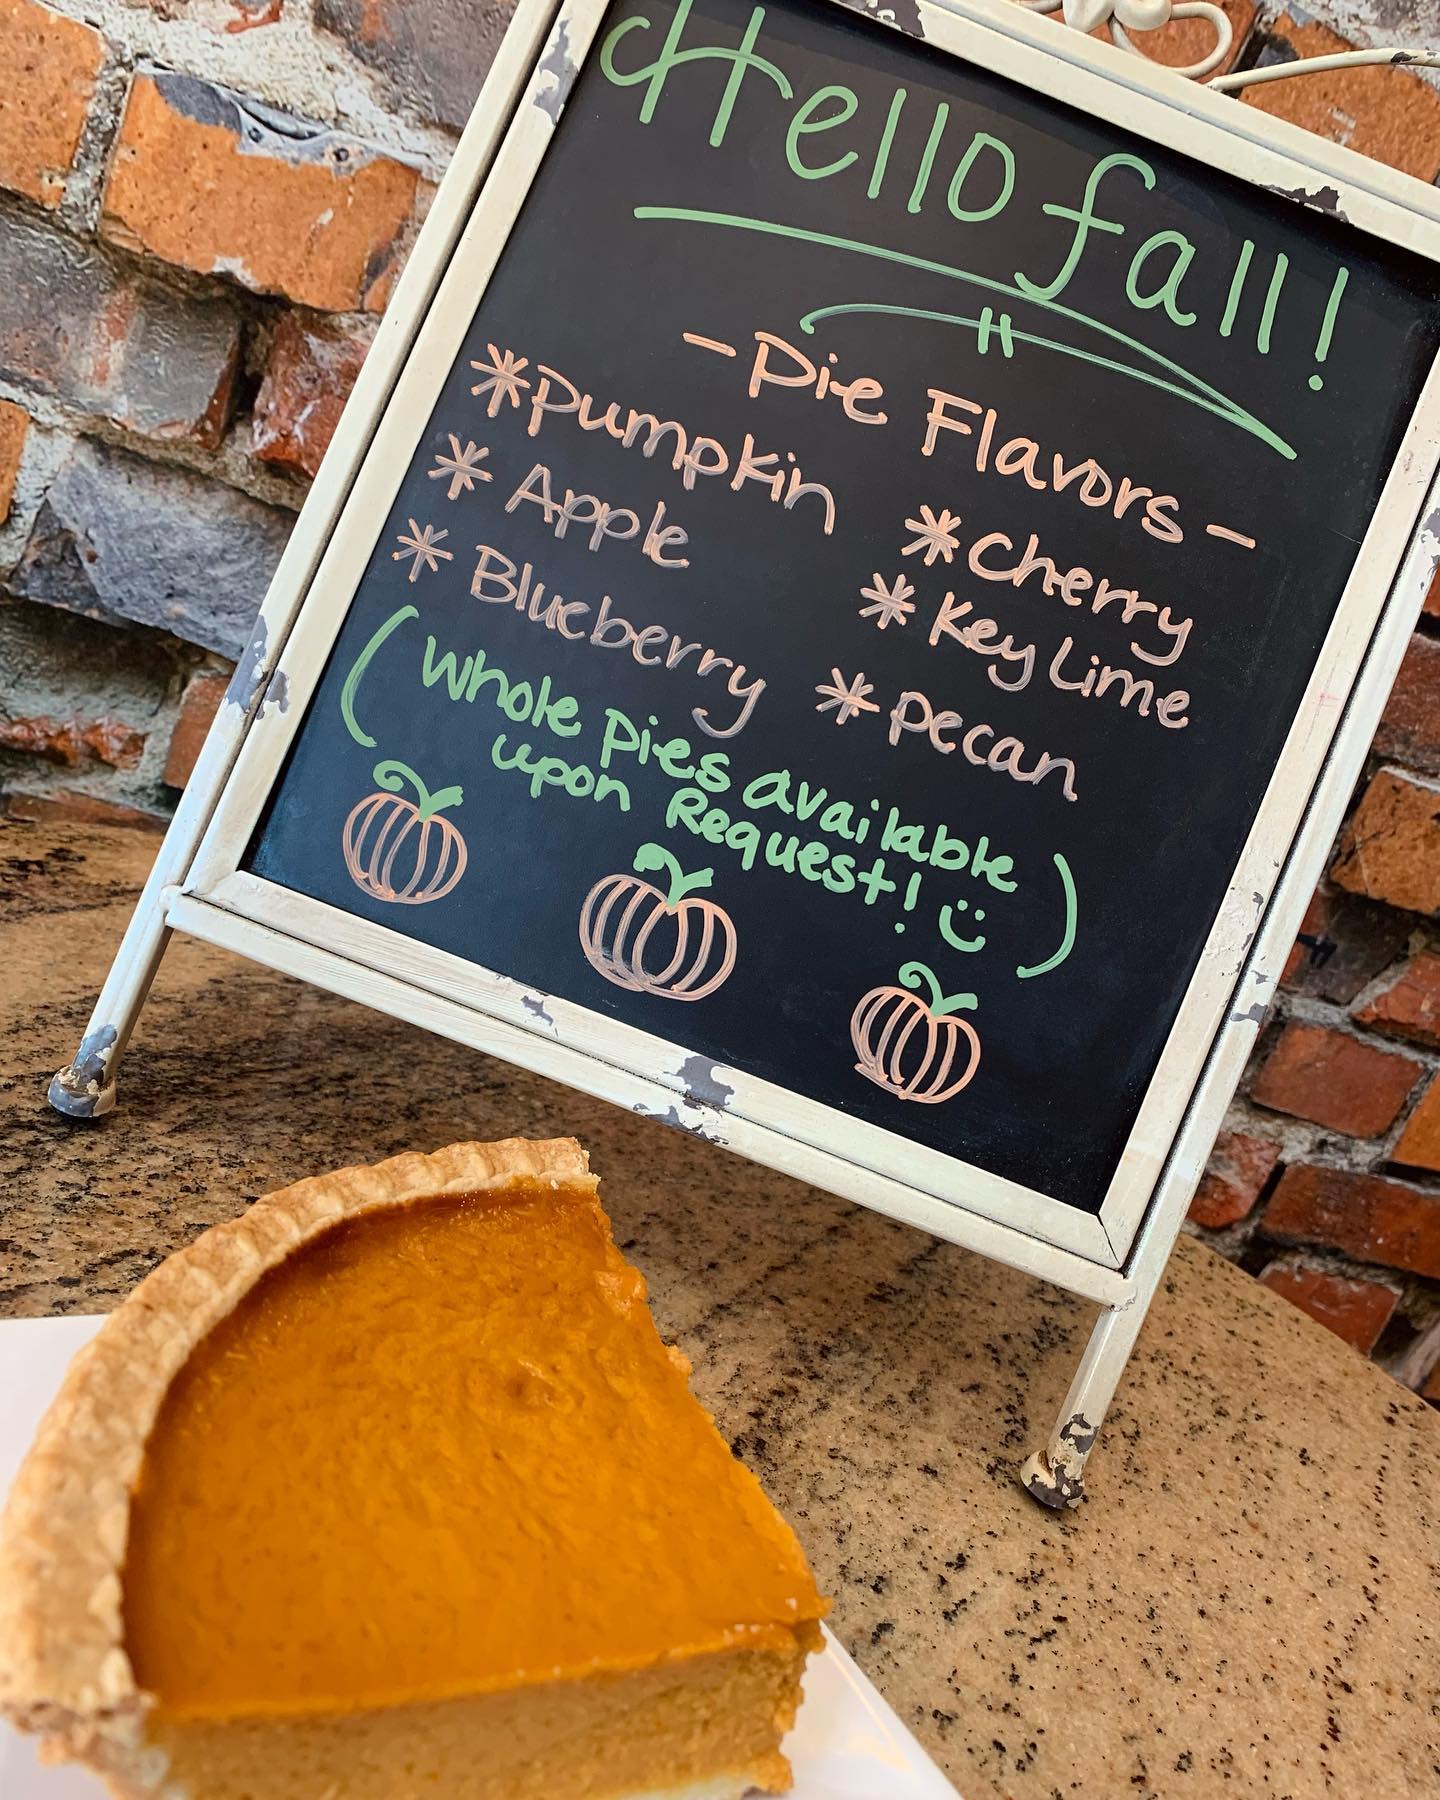 Hello fall!
-Pie Flavors-
*Pumpkin
*Apple
*Blueberry
*Cherry
*Key Lime
*pecan
(Whole pies available
upon Request! :))